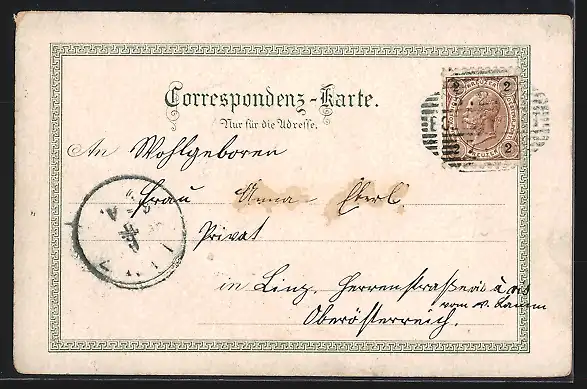 Correspondenz-Karte.
Nur für die Adresse.
2 2
2
An Wohlgeboren
Frau Anna Eberl
Privat
in Linz, Herrenstraße
vom
Oberösterreich.